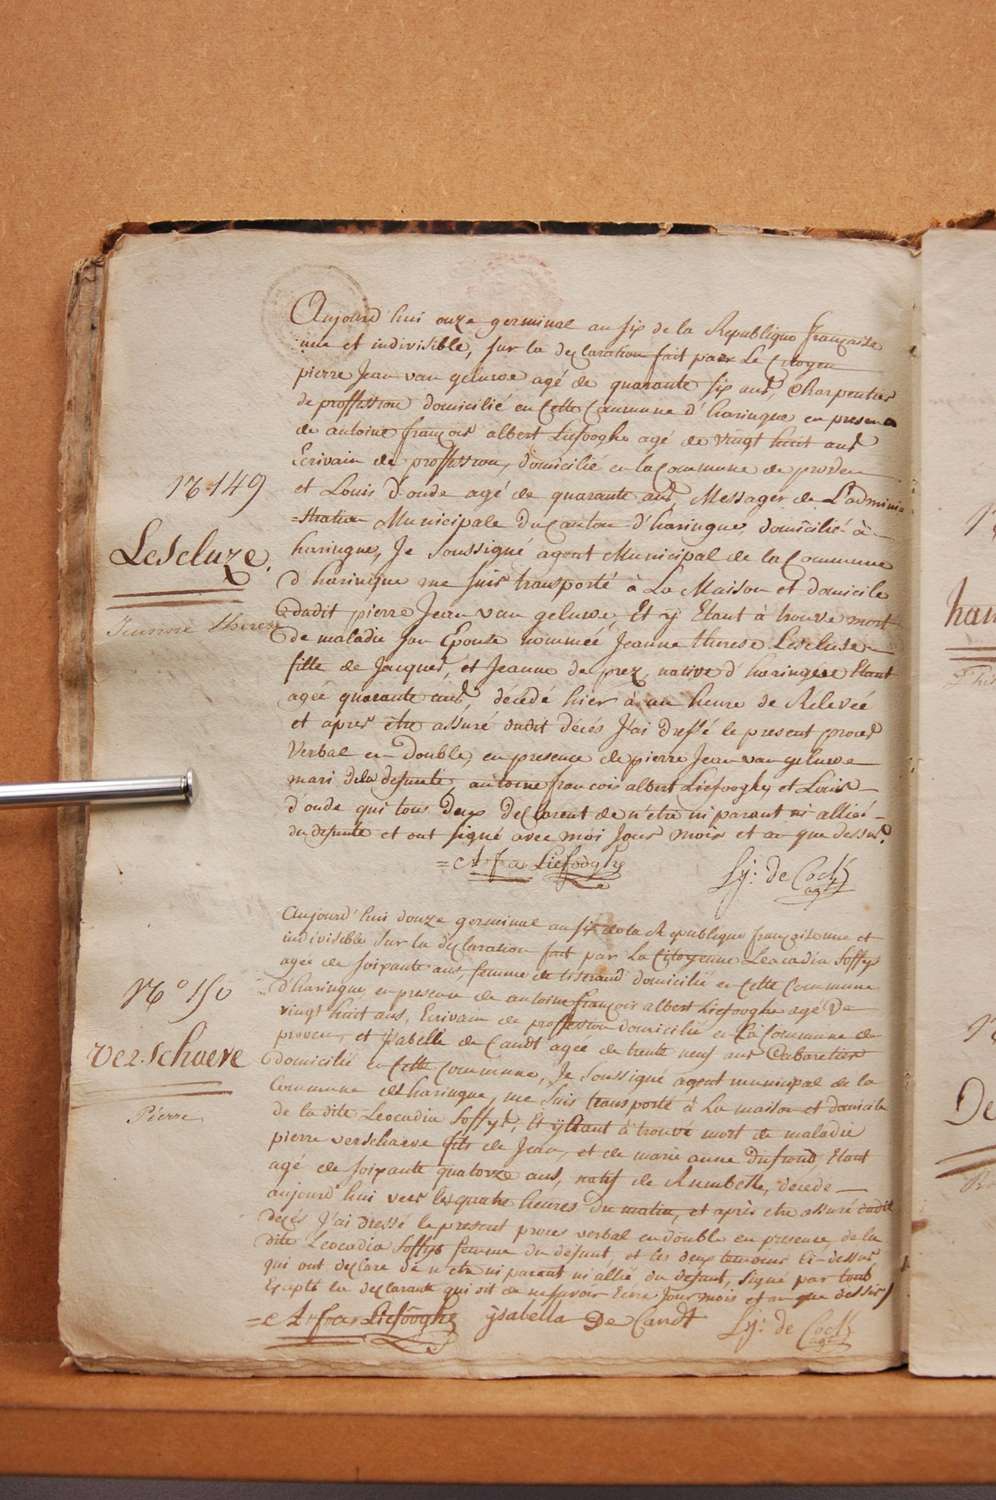 Aujourd'hui onze germinal an six de la Republique française
une et indivisible, sur la declaration fait paer Le Citoyen
pierre Jean van geluwe agé de quarante six ans, Charpentier
de proffession domicilié en Cette Commune d'haringue en presence
de antoine françois albert Liefooghe agé de vingt huit ans
Ecrivain de proffession, domicilié en la Commune de proven
N 149
et Louis D'oude agé de quarante ans, Messager de L'adminis
=tration Municipale du Canton d'haringue, domicilié à
Leseluze.
haringue, Je soussigné agent Municipal de la Commune
d'haringue me suis transporté à La Maison et domicile
Jeanne Therese
dudit pierre Jean van geluwe, Et y Etant à trouvé mort
de maladie son Epouse nommeé Jeanne therese Leseluse
fille de Jacques, et Jeanne de prez, native d'haringue Etant
ageé quarante ans, décédé hier à un heure de Releveé
et apres etre assuré dudit décés J'ai dressé le present proces
verbal en Double, en presence de pierre Jean van geluwe
mari dela defunte, antoine francois albert Liefooghe et Louis
d'oude qui tous deux declarent de n'etre ni parent ni allié
du defunte et ont signé avec moi Jour mois et an que dessus
= A fra Liefooghe
Ly: de Cock
agt
Aujourd'hui douze germinal an six de la Republique françoise une et
indivisible Sur la declaration fait par La Citoyenne Leocadia Soffys
ageé de soixante ans, femme de tisserand domicilié en Cette Commune
N° 150
d'haringue en presence de antoine françois albert Liefooghe agé de
vingt huit ans, Ecrivain de proffession domicilié en La Commune de
proven, et ysabelle de Candt ageé de trente neuf ans Cabaretier
Verschaeve
domicilié en Cette Commune, Je soussigné agent municipal de la
Commune d'haringue, me suis transporté à La maison et domicile
Pierre
de la dite Leocadia Soffys, Et y Etant à trouvé mort de maladie
pierre verschaeve fils de Jean, et de marie anne Etant
agé de soixante quatorze ans, natif de Rumbeke, decede
aujourd'hui vers les quatre heures du matin, et après etre assuré dudit
decés J'ai dressé le present proces verbal en double en presence de la
dite Leocadia Soffys femme du defunt, et les deux temoins Ci-dessus
qui ont declare de n'etre ni parent ni allié du defunt, signé par tous
Excepté la declarante qui dit de ne sçavoir Ecrire Jour mois et an que dessus
= A fra Liefooghe ysabella De Candt Ly: de Cock
agt